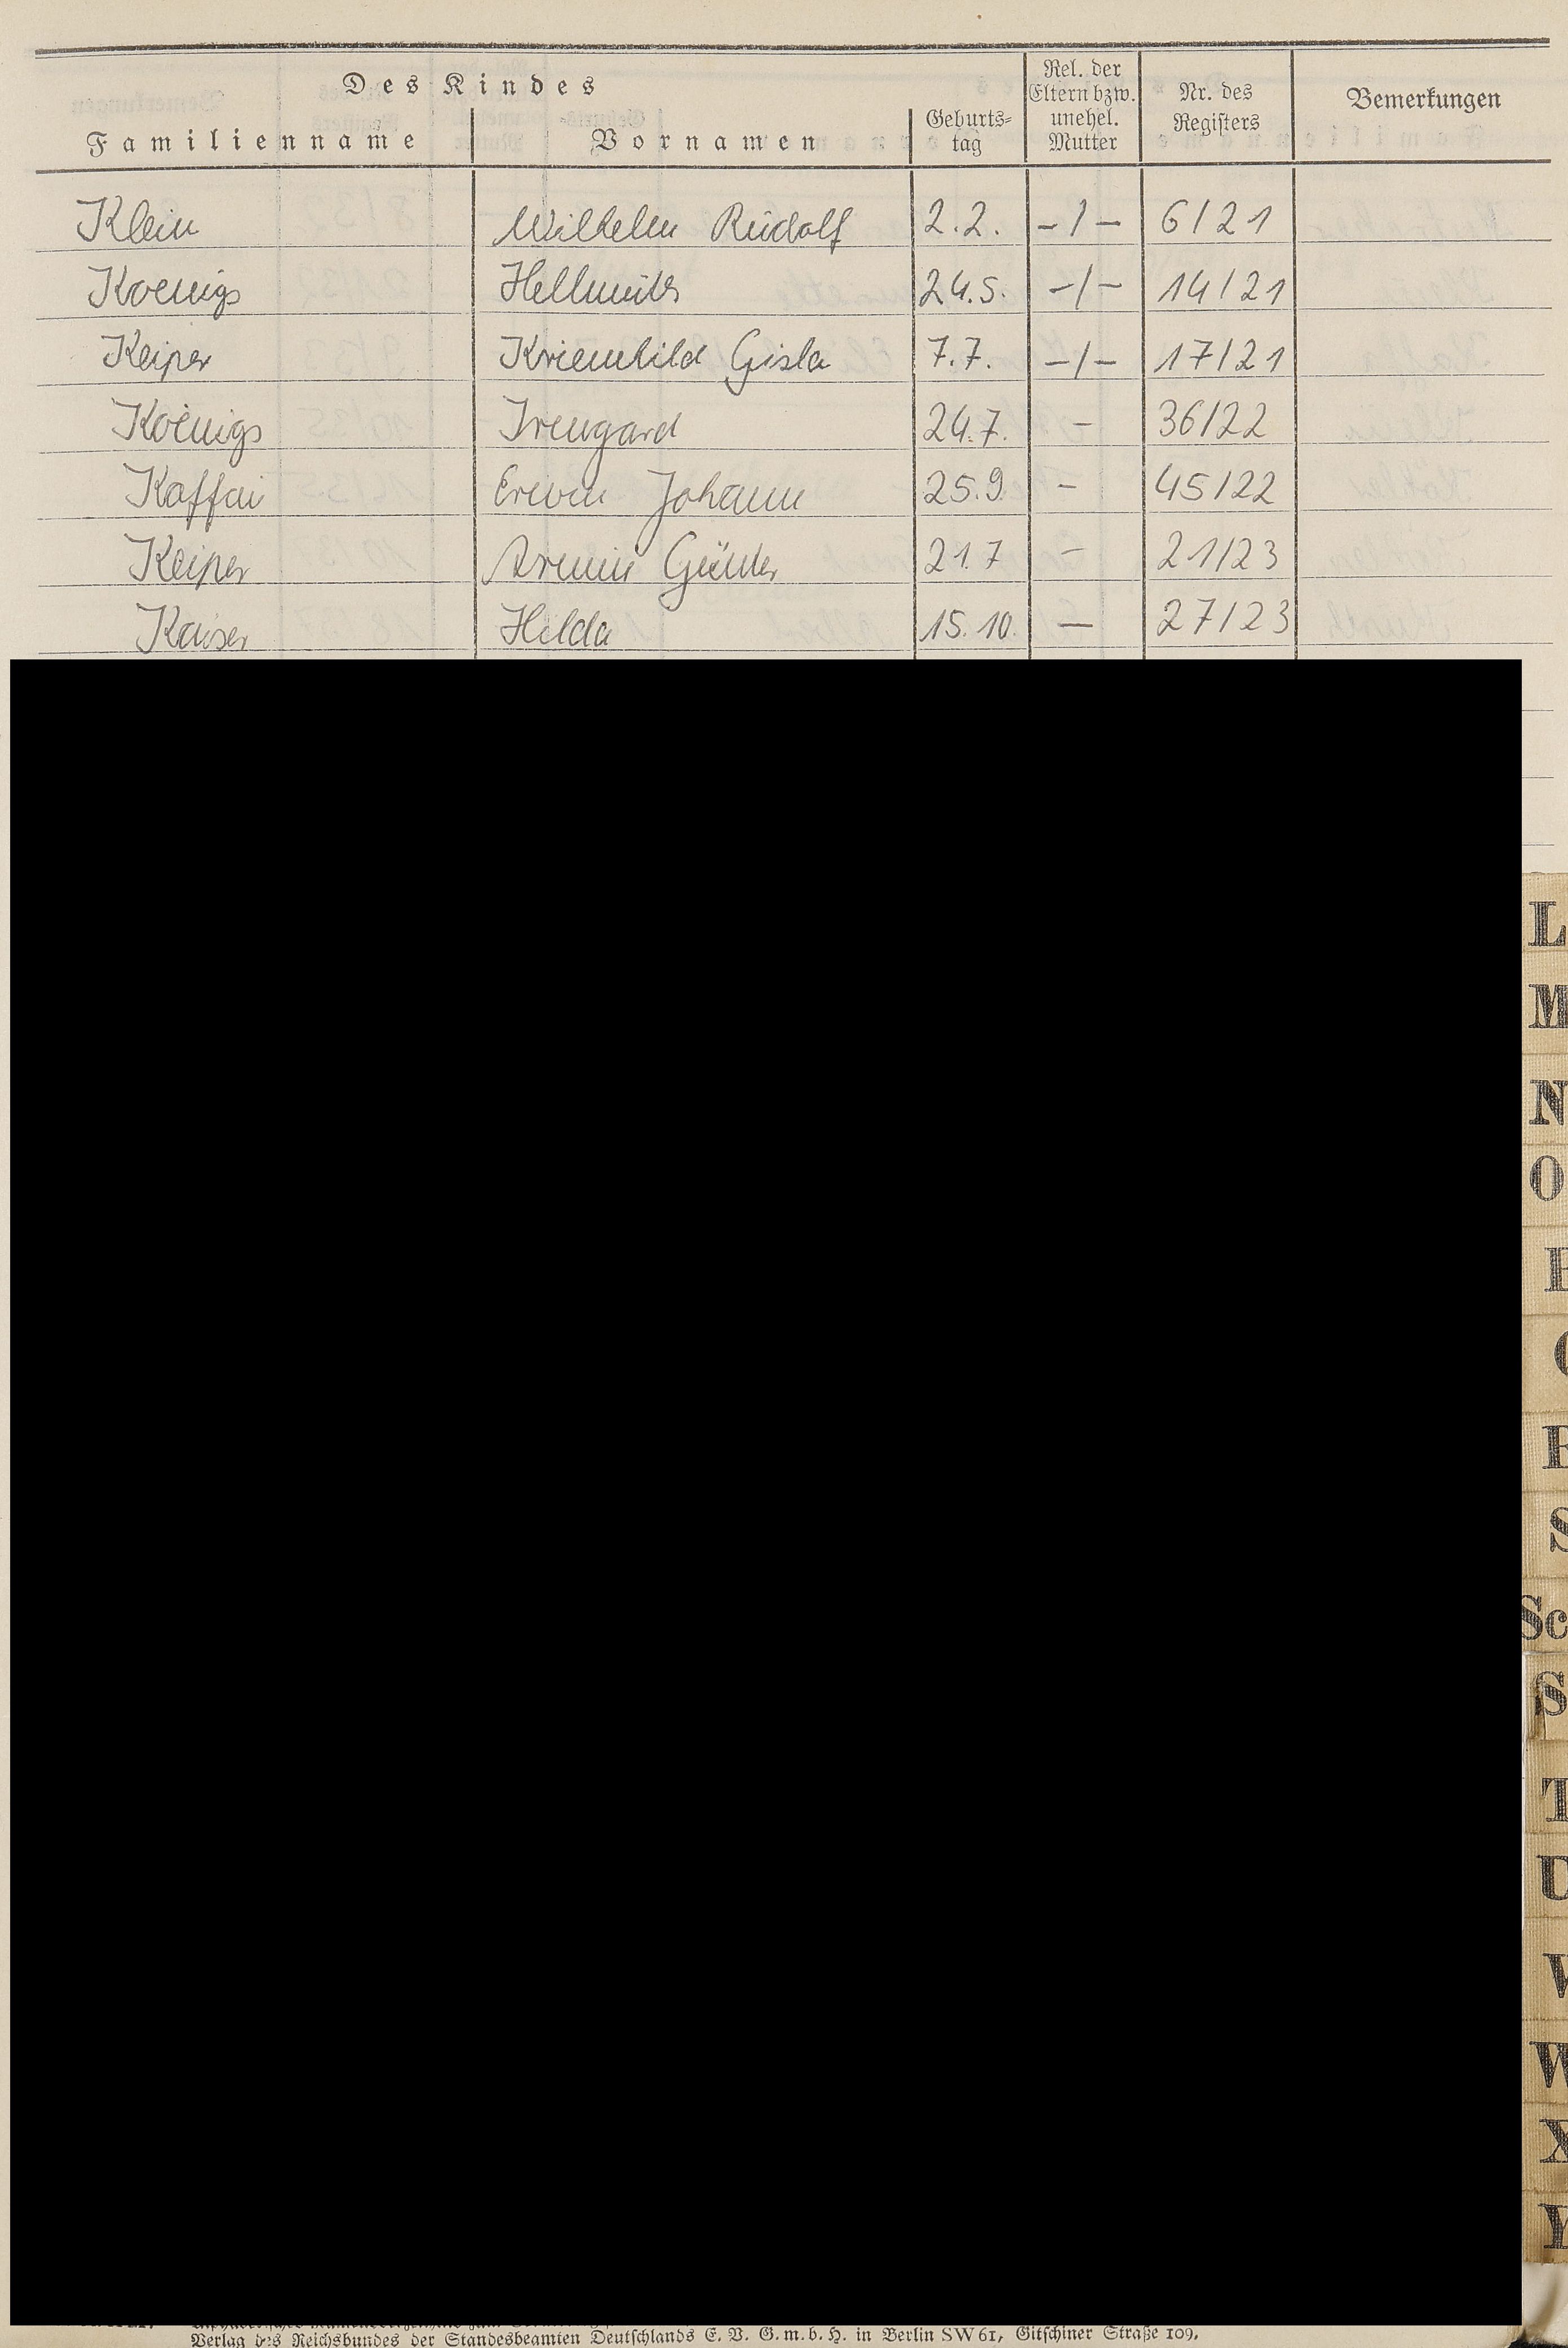 Des Kindes
Familienname Vornamen Geburts=tag Rel. der Eltern bzw. unehel. Mutter Nr. des Registers Bemerkungen
Klein Wilhelm Rudolf 2.2. -/- 6/21
Koenigs Hellmuth 24.5. -/- 14/21
Keiper Kriemhild Gisla 7.7. -/- 17/21
Koenigs Irmgard 24.7. - 36/22
Kaffai Erwin Johann 25.9. - 45/22
Keiper Armin Günter 21.7 - 21/23
Kaiser Hilda 15.10. - 27/23
L
M
N
O
S
Sc
S
T
U
V
W
X
Y
Verlag des Reichsbundes der Standesbeamten Deutschlands E. V. G. m. b. H. in Berlin SW 61, Gitschiner Straße 109.